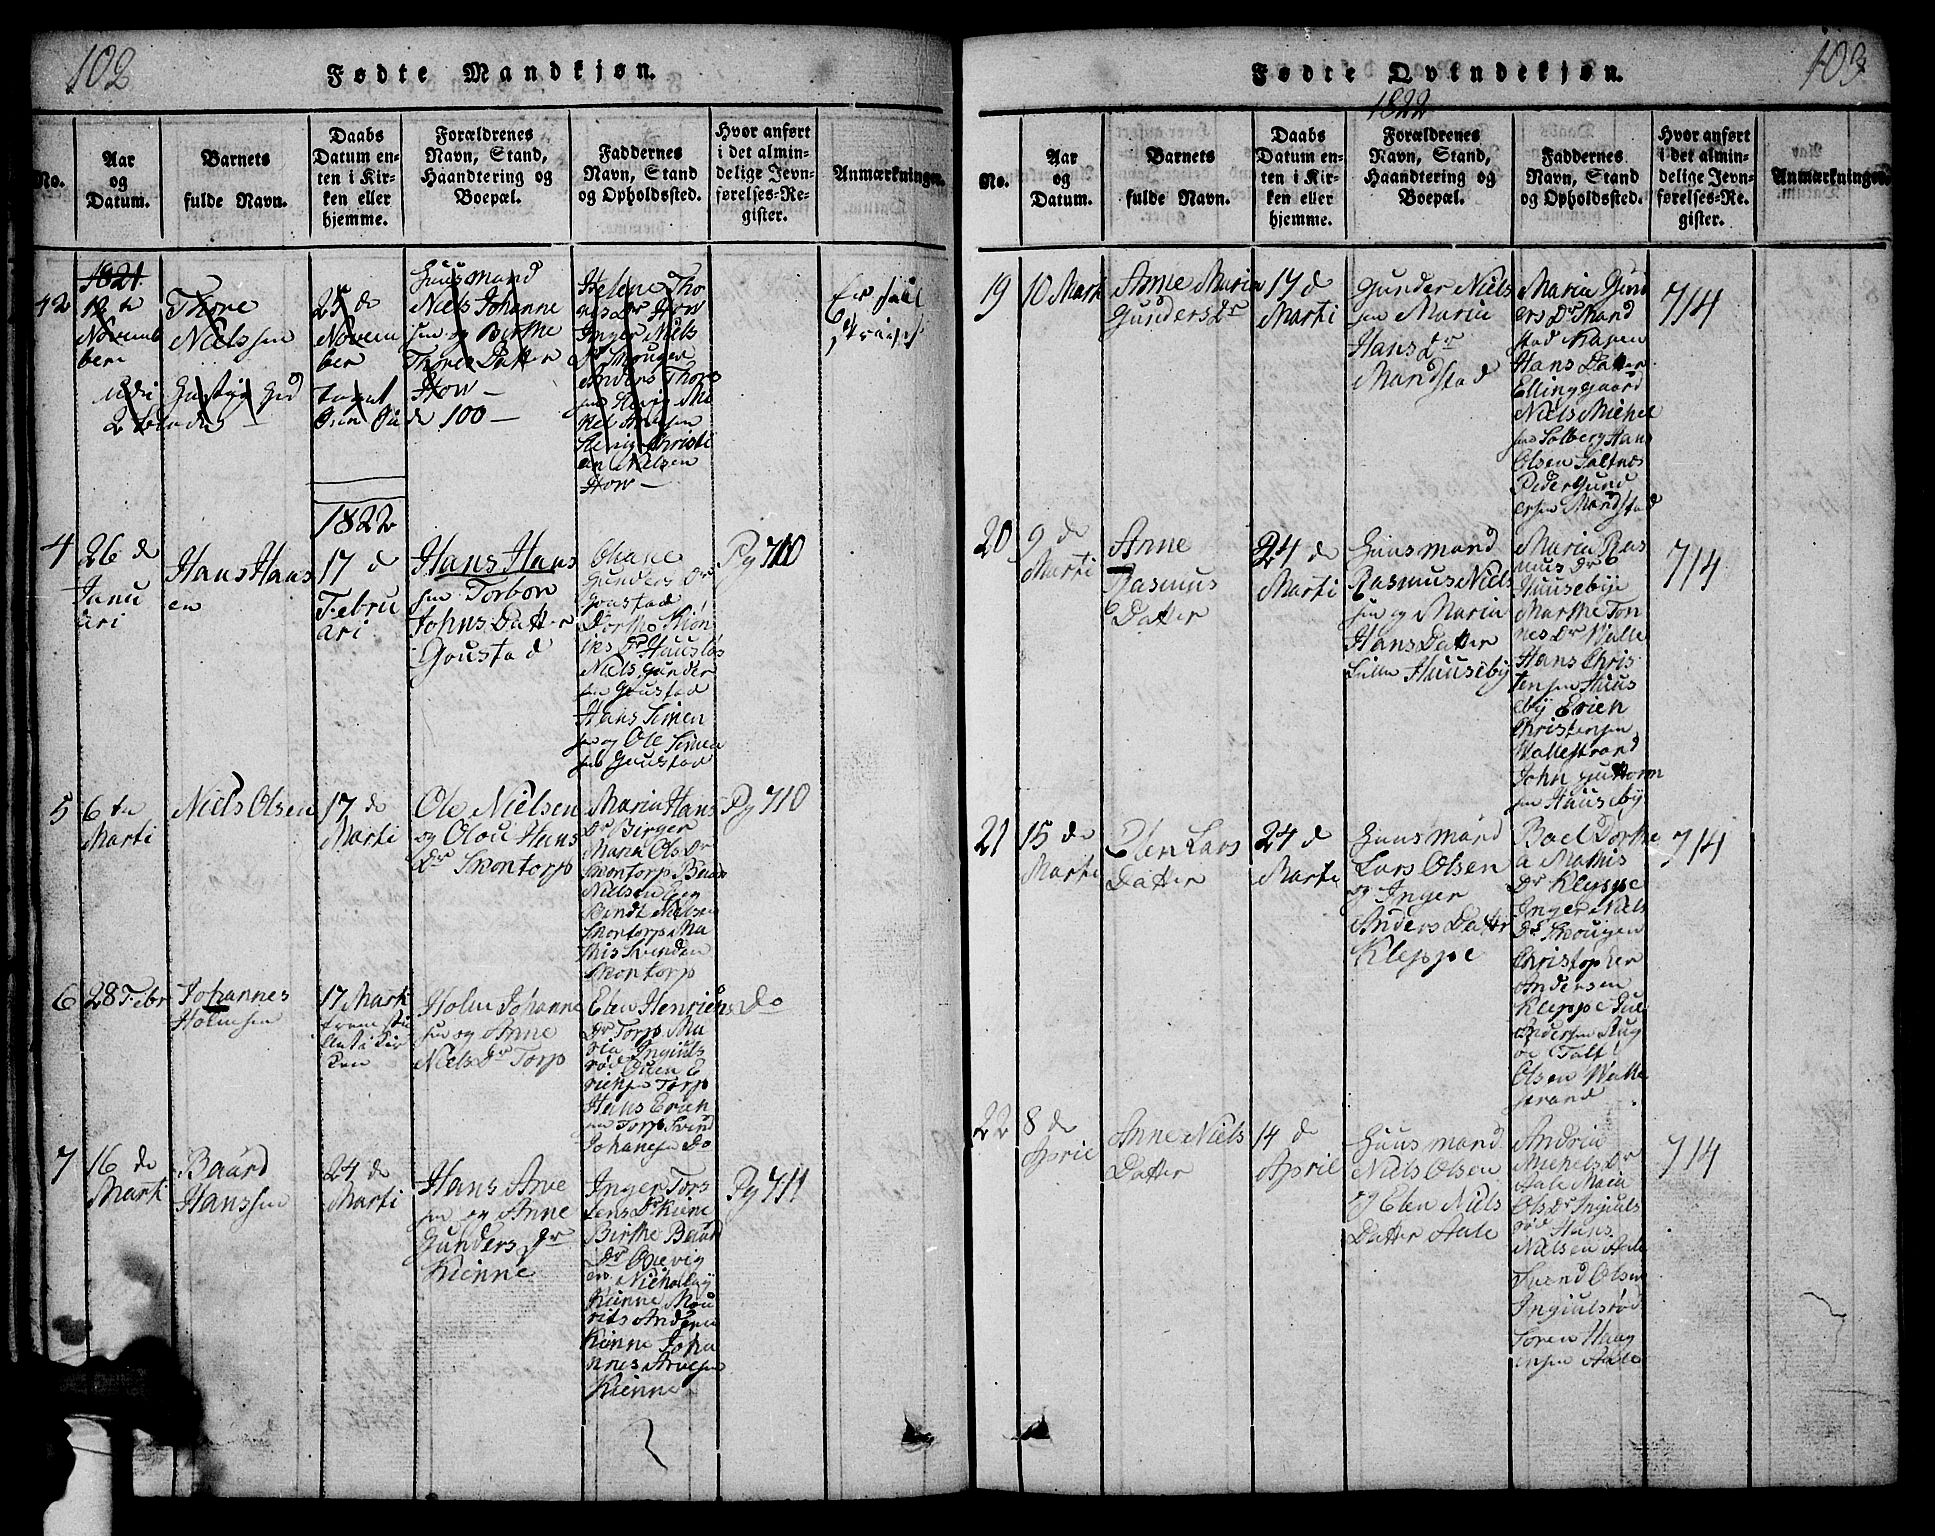 102
Fødte Mandkjøn.
No.
Aar
og
Datum.
Barnets
fulde Navn.
Daabs
Datum en-
ten i Kir-
ken eller
hjemme.
Forældrenes
Navn, Stand,
Haandtering og
Boepæl.
Faddernes
Navn, Stand
og Opholdssted.
Hvor anført
i det almin-
delige Jevn-
førelses-Re-
gister.
Anmærkninger.
42
1821
12 te
Novem
ber
Thore
Nielssen
25 de
Novem
ber
Huusmand
Niels Johanne
sen og Birthe
Thores Datter
How
Helene Tho
res Dr How
Inger Niels
Dr Skouger
Anders Thors
sen
Christi
an Nielsen
How
Er falt
de 100
1822
4
26 de
Janu
ari
Hans Hans
en
17 de
Febru
ari
Hans Hans
sen Torbor
Johns Datter
Goustad
Gunders Dr
Goustad
Dorthe
Dr Hauslos
Niels Gunder
sen Goustad
Hans Simen
sen og Ole Simen
sen Goustad
Pg 710
5
6 te
Marti
Niels Olsen
17 de
Marti
Ole Nielsen
og Oloui Hans
Dr Smontorp
Maria Hans
Dr Birger
Maria Ols Dr
Smontorp
Nielsen
Bendt Nielsen
Smontorp Ma
this Svendsen
Smontorp
Pg 710
6
28 Febr
Johannes
Holmsen
17 Mark
Kir
ken
Holm Johanne
sen og Anne
Niels Dr Torp
Elen Henrichs
Dr Torp Ma
ria Ingiuls
rød Olsen E
richs Torp
Hans Erich
sen Torp Svend
Johansen Do
Do
7
16 de
Marti
Baard
Hanssen
24 de
Marti
Hans Arve
sen og Anne
Gunders Dr
Kienne
Inger Tors
tens Dr Kiene
Birthe Baard
Dr Oxevig
Nicholay
Kienne Mou
rits Andersen
Kienne Joha
nnes Arvesen
Kienne
Pg 711
103
Fødte Qvindekjøn.
1822
No.
Aar
og
Datum.
Barnets
fulde Navn.
Daabs
Datum en-
ten i Kir-
ken eller
hjemme.
Forældrenes
Navn, Stand,
Haandtering og
Boepæl.
Faddernes
Navn, Stand
og Opholdssted.
Hvor anført
i det almin-
delige Jevn-
førelses-Re-
gister.
Anmærkninger.
19
10 Mark
Anne Maria
Gunders Dr
17 de
Marti
Gunder Niels
sen Maria
Hans Dr
Mandstad
Maria Gund
ers Dr Mand
stad Karen
Hans Datter
Ellinggaard
Niels Michel
sen Solberg Hans
Olsen Saltnes
Peder Gund
ersen Mandstad
714
20
9 de
Marti
Anne
Rasmus
Datter
24 de
Marti
Huusmand
Rasmus Niels
sen og Maria
Hans Datter
Lille Huuseby
Maria Ras
mus Dr
Huusebye
Marthe Ton
nes Dr Walle
Hans Chris
tensen Huus
eby Erich
Christensen
Wallestrand
John Guttorm
sen Huuseby
714
21
15 de
Marti
Elen Lars
Datter
24 de
Marti
Huusmand
Lars Olsen
og Inger
Anders Datter
Kleppe
Boel Dorthe
a Mathis
Dr Kleppe
Inger Niels
Dr Skougen
Christopher
Andersen
Kleppe Jul
Andersen
Olsen Walle
strand
714
22
8 de
April
Anne Niels
Datter
14 de
April
Huusmand
Niels Olsen
og Elen Niels
Datter Aale
Andria
Michels Dr
Aale Maria
Ols Dr Ingiuls
rød Hans
Nielsen Aale
Svend Olsen
Ingiulsrød
Soren Haag
ensen Aale
714